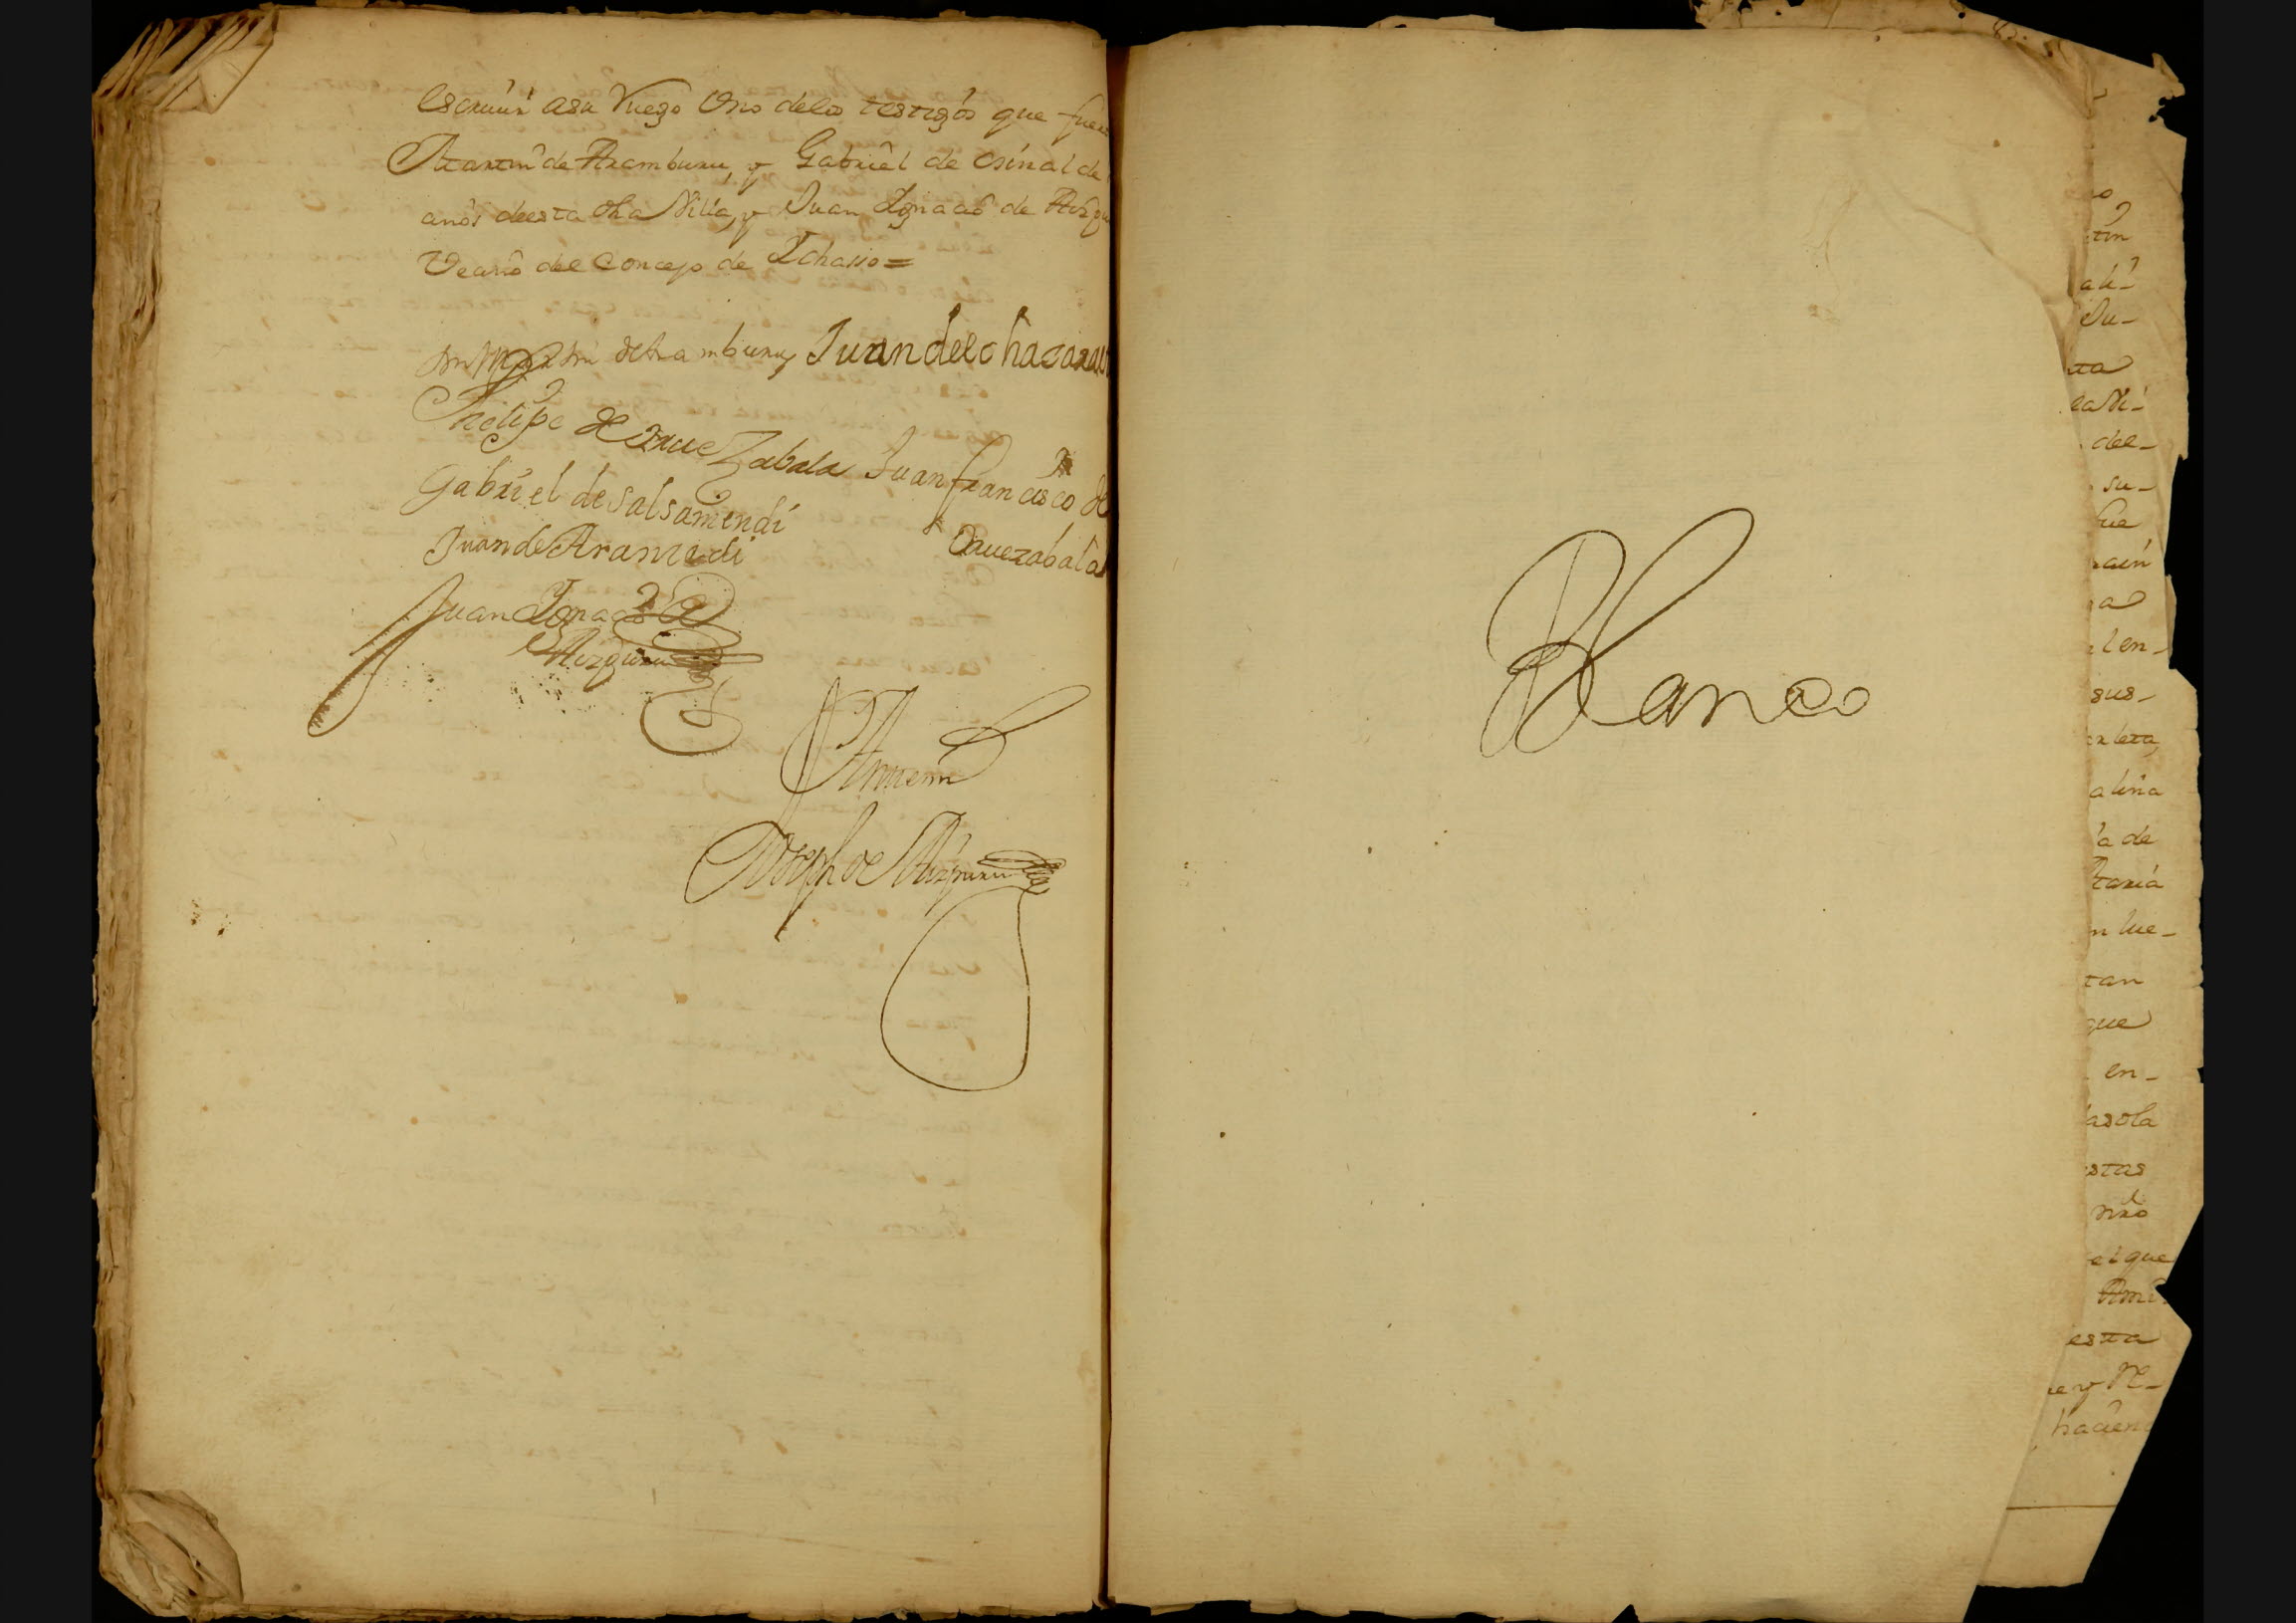 escriuir asu Ruego Uno delos testigos que fueron
Martin de Aramburu, y Gabriel de Osinalde
anôs deesta dha Villa, y Juan Ignacio de Aizpu
Vecino del Concejo de Ichasso =
Martin de Aramburu Juan de
Phelipe de Orue Zabala Juan francisco de
Gabriel de Salsamendi
Oruezabala
Juan de Aramendi
Juan Ignacio de
Aizpuru
Antemi
Joseph de Aizpuru
Blanco
tin
ali-
Ju-
ta
del-
su-
fue
a
len-
sus-
alina
la de
taria
n lue-
tan
que
en-
asola
stas
el que
Ami
esta
ue y Re-
hacien